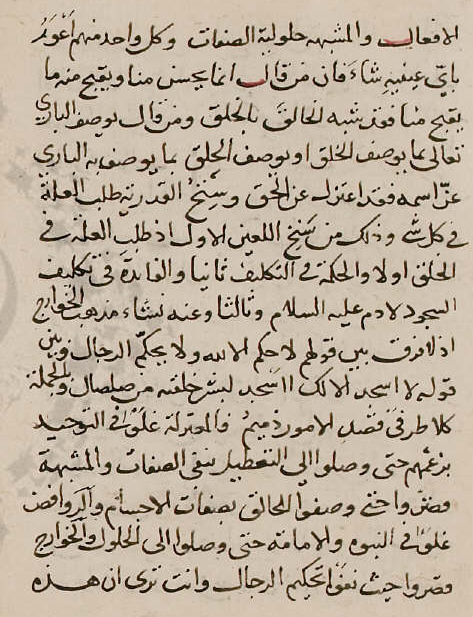 الافعال والمشبهه حلولية الصفات وكل واحد منهم اعور
باي عينيه شاء فان من قال انما يحسن منا ويقبح منه ما
يقبح منا فقد شبه الخالق بالخلق ومن قال يوصف الباري
تعالى بما يوصف الخلق او يوصف الخلق بما يوصف به الباري
عز اسمه فقد اعتزل عن الحق وسنخ القدرية طلب العلة
في كل شى وذلك من سنخ اللعين الاول اذ طلب العلة في
الخلق اولا والحكمة في التكليف ثانيا والفايدة في تكليف
السجود لادم عليه السلام وثالثا وعنه نشاء مذهب الخوارج
اذ لا فرق بين قولهم لا حكم الا لله ولا يحكم الرجال وبين
قوله لا اسجد الا لك أاسجد لبشر خلقته من صلصال وبالجملة
كلا طرفي قصد الامور ذميم فالمعتزلة غلوا في التوحيد
بزعمهم حتى وصلوا الى التعطيل بنفي الصفات والمشبهة
قصروا حتى وصفوا الخالق بصفات الاجسام والروافض
غلوا في النبوه والامامة حتى وصلوا الى الحلول والخوارج
قصروا حيث نفوا تحكيم الرجال وانت ترى ان هذه